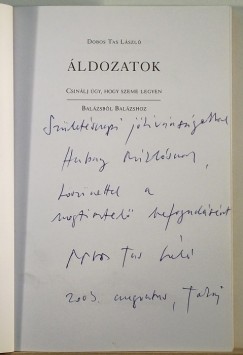 Dobos Tas László
ÁLDOZATOK
Csináld úgy, hogy szebbé legyen
Balázsról Balázshoz
Születésnapi jókívánságokkal
Hubay Miklósnak,
köszönettel a
megtisztelő befogadásért
Dobos Tas László
2003. augusztus,